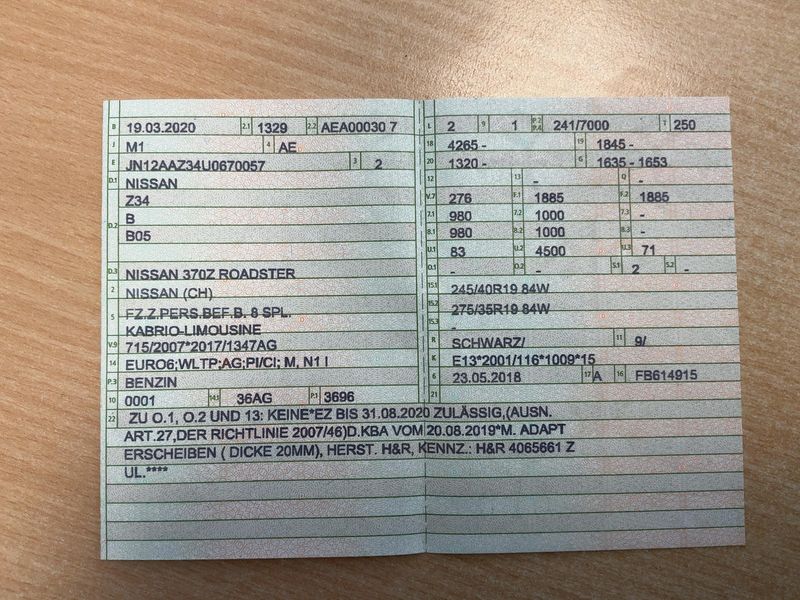 B 19.03.2020 2.1 1329 2.2 AEA00030 7
J M1 4 AE
E JN12AAZ34U0670057 3 2
D.1 NISSAN
Z34
D.2 B
B05
D.3 NISSAN 370Z ROADSTER
2 NISSAN (CH)
5 FZ.Z.PERS.BEF.B. 8 SPL.
KABRIO-LIMOUSINE
V.9 715/2007*2017/1347AG
14 EURO6;WLTP;AG;PI/CI; M, N1 I
P.3 BENZIN
10 0001 14.1 36AG P.1 3696
L 2 9 1 P.2 P.4 241/7000 T 250
18 4265 - 19 1845 -
20 1320 - G 1635 - 1653
12 13 - Q -
V.7 276 F.1 1885 F.2 1885
7.1 980 7.2 1000 7.3 -
8.1 980 8.2 1000 8.3 -
U.1 83 U.2 4500 U.3 71
O.1 - O.2 - S.1 2 S.2 -
15.1 245/40R19 84W
15.2 275/35R19 84W
15.3 -
R SCHWARZ/ 11 9/
K E13*2001/116*1009*15
6 23.05.2018 17 A 16 FB614915
21
22 ZU O.1, O.2 UND 13: KEINE*EZ BIS 31.08.2020 ZULÄSSIG,(AUSN.
ART.27,DER RICHTLINIE 2007/46)D.KBA VOM 20.08.2019*M. ADAPT
ERSCHEIBEN ( DICKE 20MM), HERST. H&R, KENNZ.: H&R 4065661 Z
UL.****